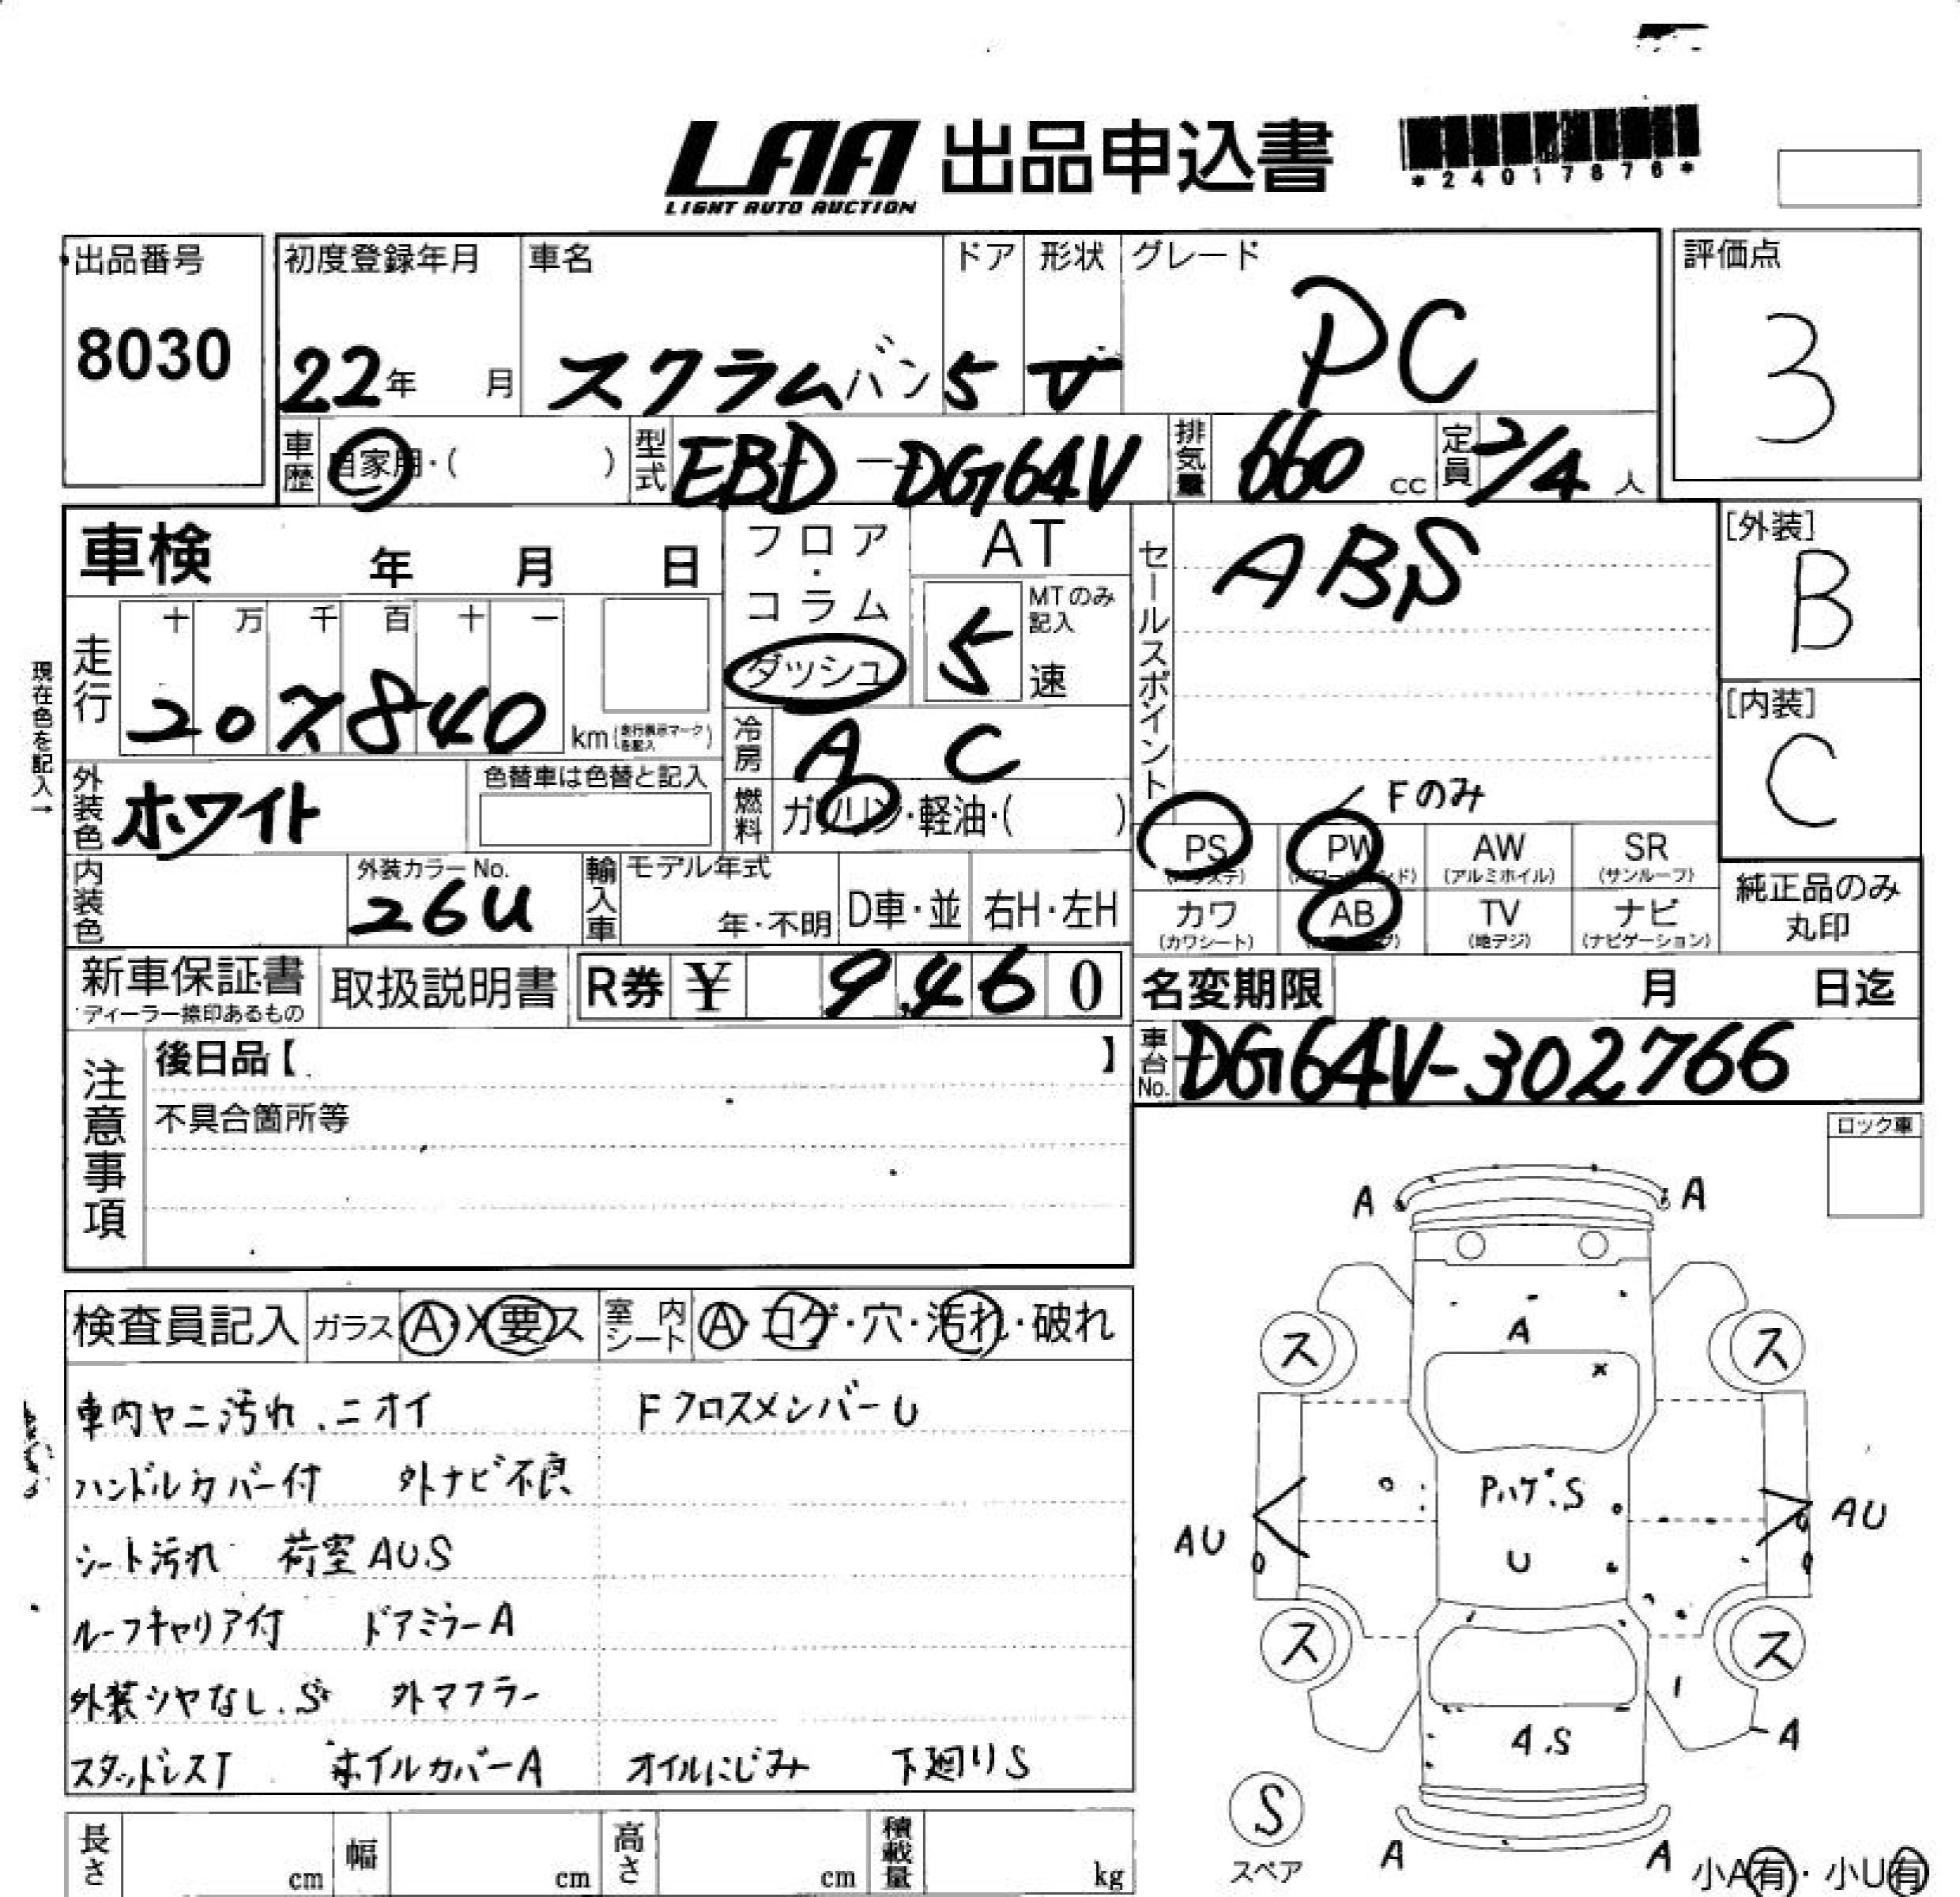 LAA 出品申込書
LIGHT AUTO AUCTION
*24017876*
出品番号 初度登録年月 車名 ドア 形状 グレード 評価点
8030 22年 月 スクラムバン 5 V PC 3
車歴 自家用・( ) 型式 EBD-DG64V 排気量 660 cc 定員 2/4 人
車検 年 月 日 フロア・コラム ダッシュ AT 5 MTのみ記入 速
セールスポイント ABS
[外装] B
走行 十 万 千 百 十 一
207840 km (走行表示マークを記入)
現在色を記入→
冷房 A C
[内装] C
外装色 ホワイト 色替車は色替と記入
燃料 ガソリン・軽油・( )
Fのみ
PS (パワステ) PW (パワーウインド) AW (アルミホイル) SR (サンルーフ)
内装色 外装カラーNo. 26U 輸入車 モデル年式 年・不明 D車・並 右H・左H
カワ (カワシート) AB TV (地デジ) ナビ (ナビゲーション)
純正品のみ
丸印
新車保証書 取扱説明書 R券 ¥ 9,460
ディーラー捺印あるもの
名変期限 月 日迄
車台No. DG64V-302766
注意事項 後日品【 】
不具合箇所等
ロック車
検査員記入 ガラス A・X要ス 室内シート A・コゲ・穴・汚れ・破れ
車内ヤニ汚れ.ニオイ FクロスメンバーU
ハンドルカバー付 外ナビ不良
シート汚れ 荷室AU.S
ルーフキャリア付 ドアミラーA
外装ツヤなし.S 外マフラー
スタッドレスT ホイルカバーA オイルにじみ 下廻りS
A A
A
ス ス
x
Pハゲ.S
AU U AU
ス ス
A.S A
S
スペア
A A
小A有・小U有
長さ cm 幅 cm 高さ cm 積載量 kg